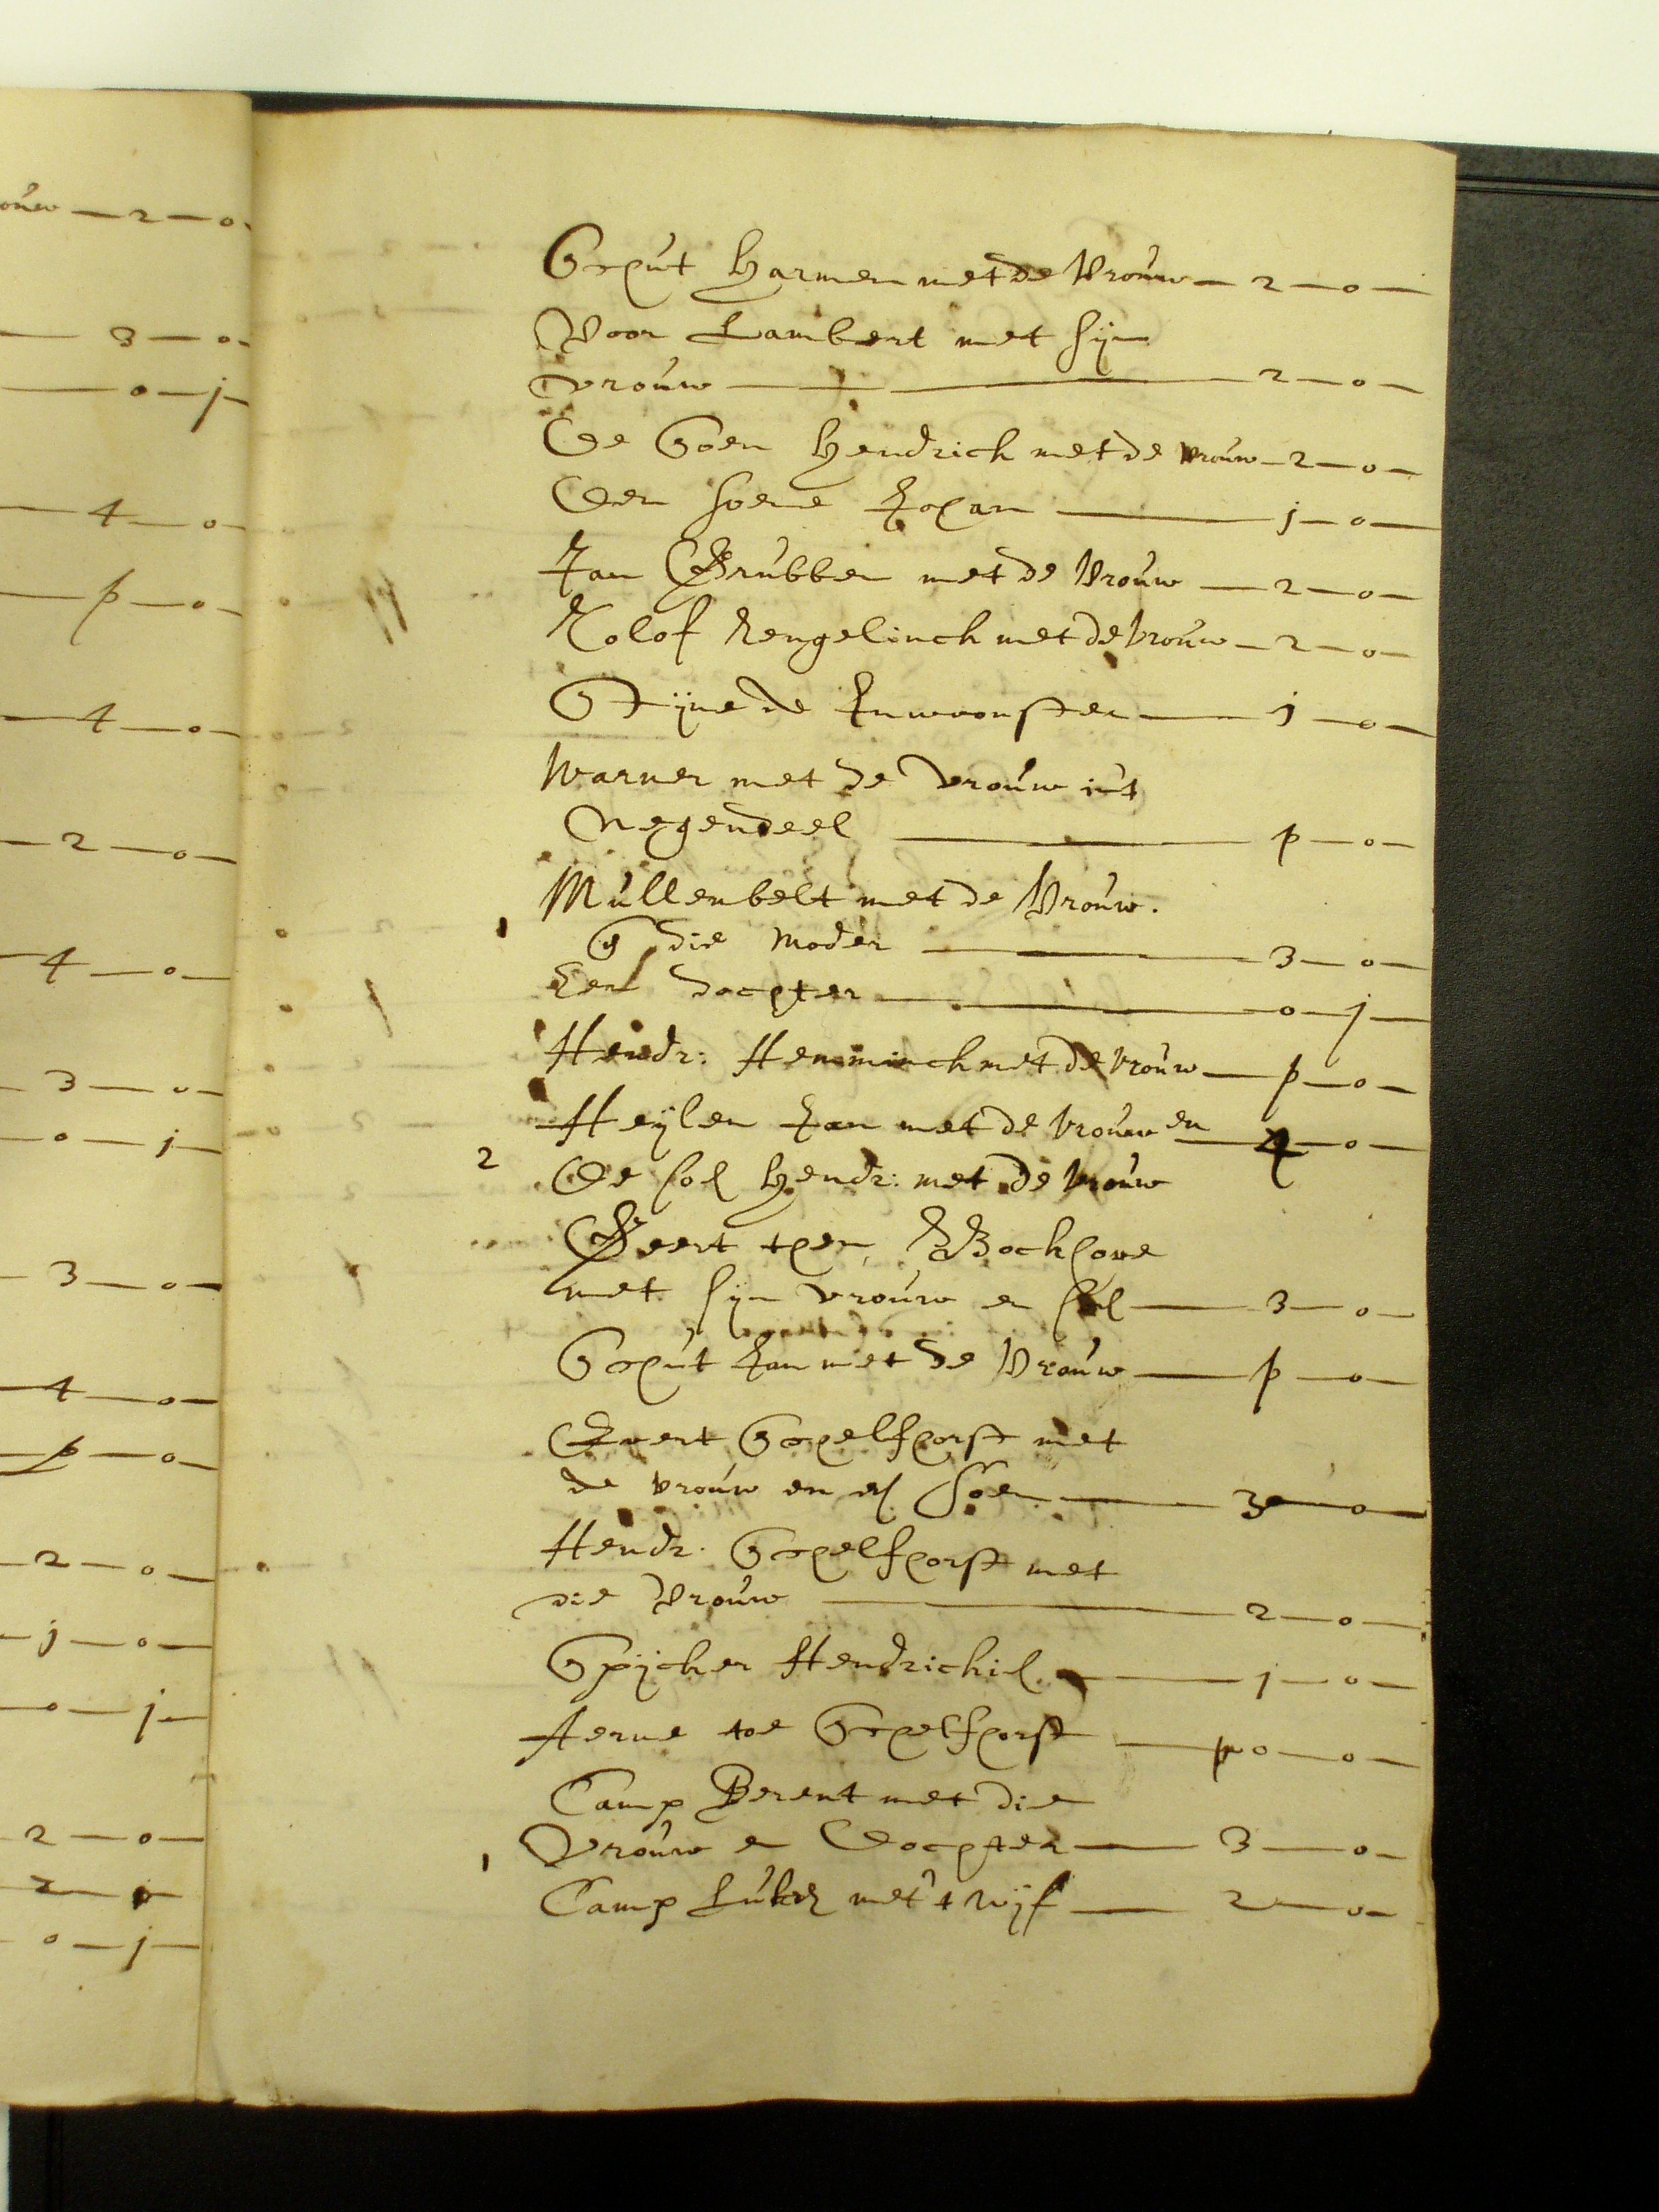 ouw — 2 — 0
— 3 — 0
— 0 — j
— 4 — 0
— p — 0
— 4 — 0
— 2 — 0
— 4 — 0
— 3 — 0
— 0 — j
— 3 — 0
— 4 — 0
— p — 0
— 2 — 0
— j — 0
— 0 — j
2 — 0
0 — j
Schut Harmen met de Vrouw — 2 — 0 —
Voor Lambert met sijn
vrouw — 2 — 0 —
De Soen Hendrich met de vrouw — 2 — 0 —
Den soene Johan — j — 0 —
Jan Grubben met de Vrouw — 2 — 0 —
Rolof Rengelinch met de vrouw — 2 — 0 —
Stijne de Inwoonster — j — 0 —
Warner met de vrouw int
Negendeel — p — 0 —
Mullenbelt met de Vrouw.
1 die Moder — 3 — 0 —
Een dochter — 0 — j —
Hendr: Hemminch met de vrouw — p — 0 —
Heylen Jan met de vrouw en — 4 — 0 —
2 De soe Hendr: met de vrouw
Geert then Bockhove
met sijn vrouw en — 3 — 0 —
Schut Jan met de Vrouw — p — 0 —
Evert Schelfhorst met
de vrouw en Soen — 3 — 0 —
Hendr. Schelfhorst met
die Vrouw — 2 — 0 —
Spijcker Hendrichie — j — 0 —
Aerne toe Schelfhorst — p — 0 — 0 —
Camp Berent met die
1 Vrouw en Dochter — 3 — 0 —
Camp met 't wijf — 2 — 0 —